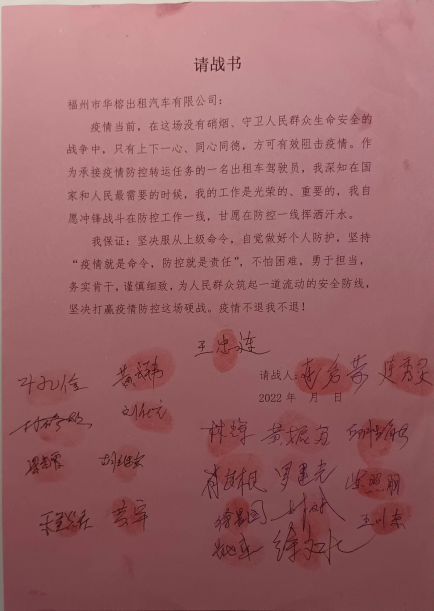 请战书
福州市华榕出租汽车有限公司：
疫情当前，在这场没有硝烟、守卫人民群众生命安全的
战争中，只有上下一心、同心同德，方可有效阻击疫情。作
为承接疫情防控转运任务的一名出租车驾驶员，我深知在国
家和人民最需要的时候，我的工作是光荣的、重要的，我自
愿冲锋战斗在防控工作一线，甘愿在防控一线挥洒汗水。
我保证：坚决服从上级命令，自觉做好个人防护，坚持
“疫情就是命令，防控就是责任”，不怕困难，勇于担当，
务实肯干，谨慎细致，为人民群众筑起一道流动的安全防线，
坚决打赢疫情防控这场硬战。疫情不退我不退！
王忠连
请战人：
2022年 月 日